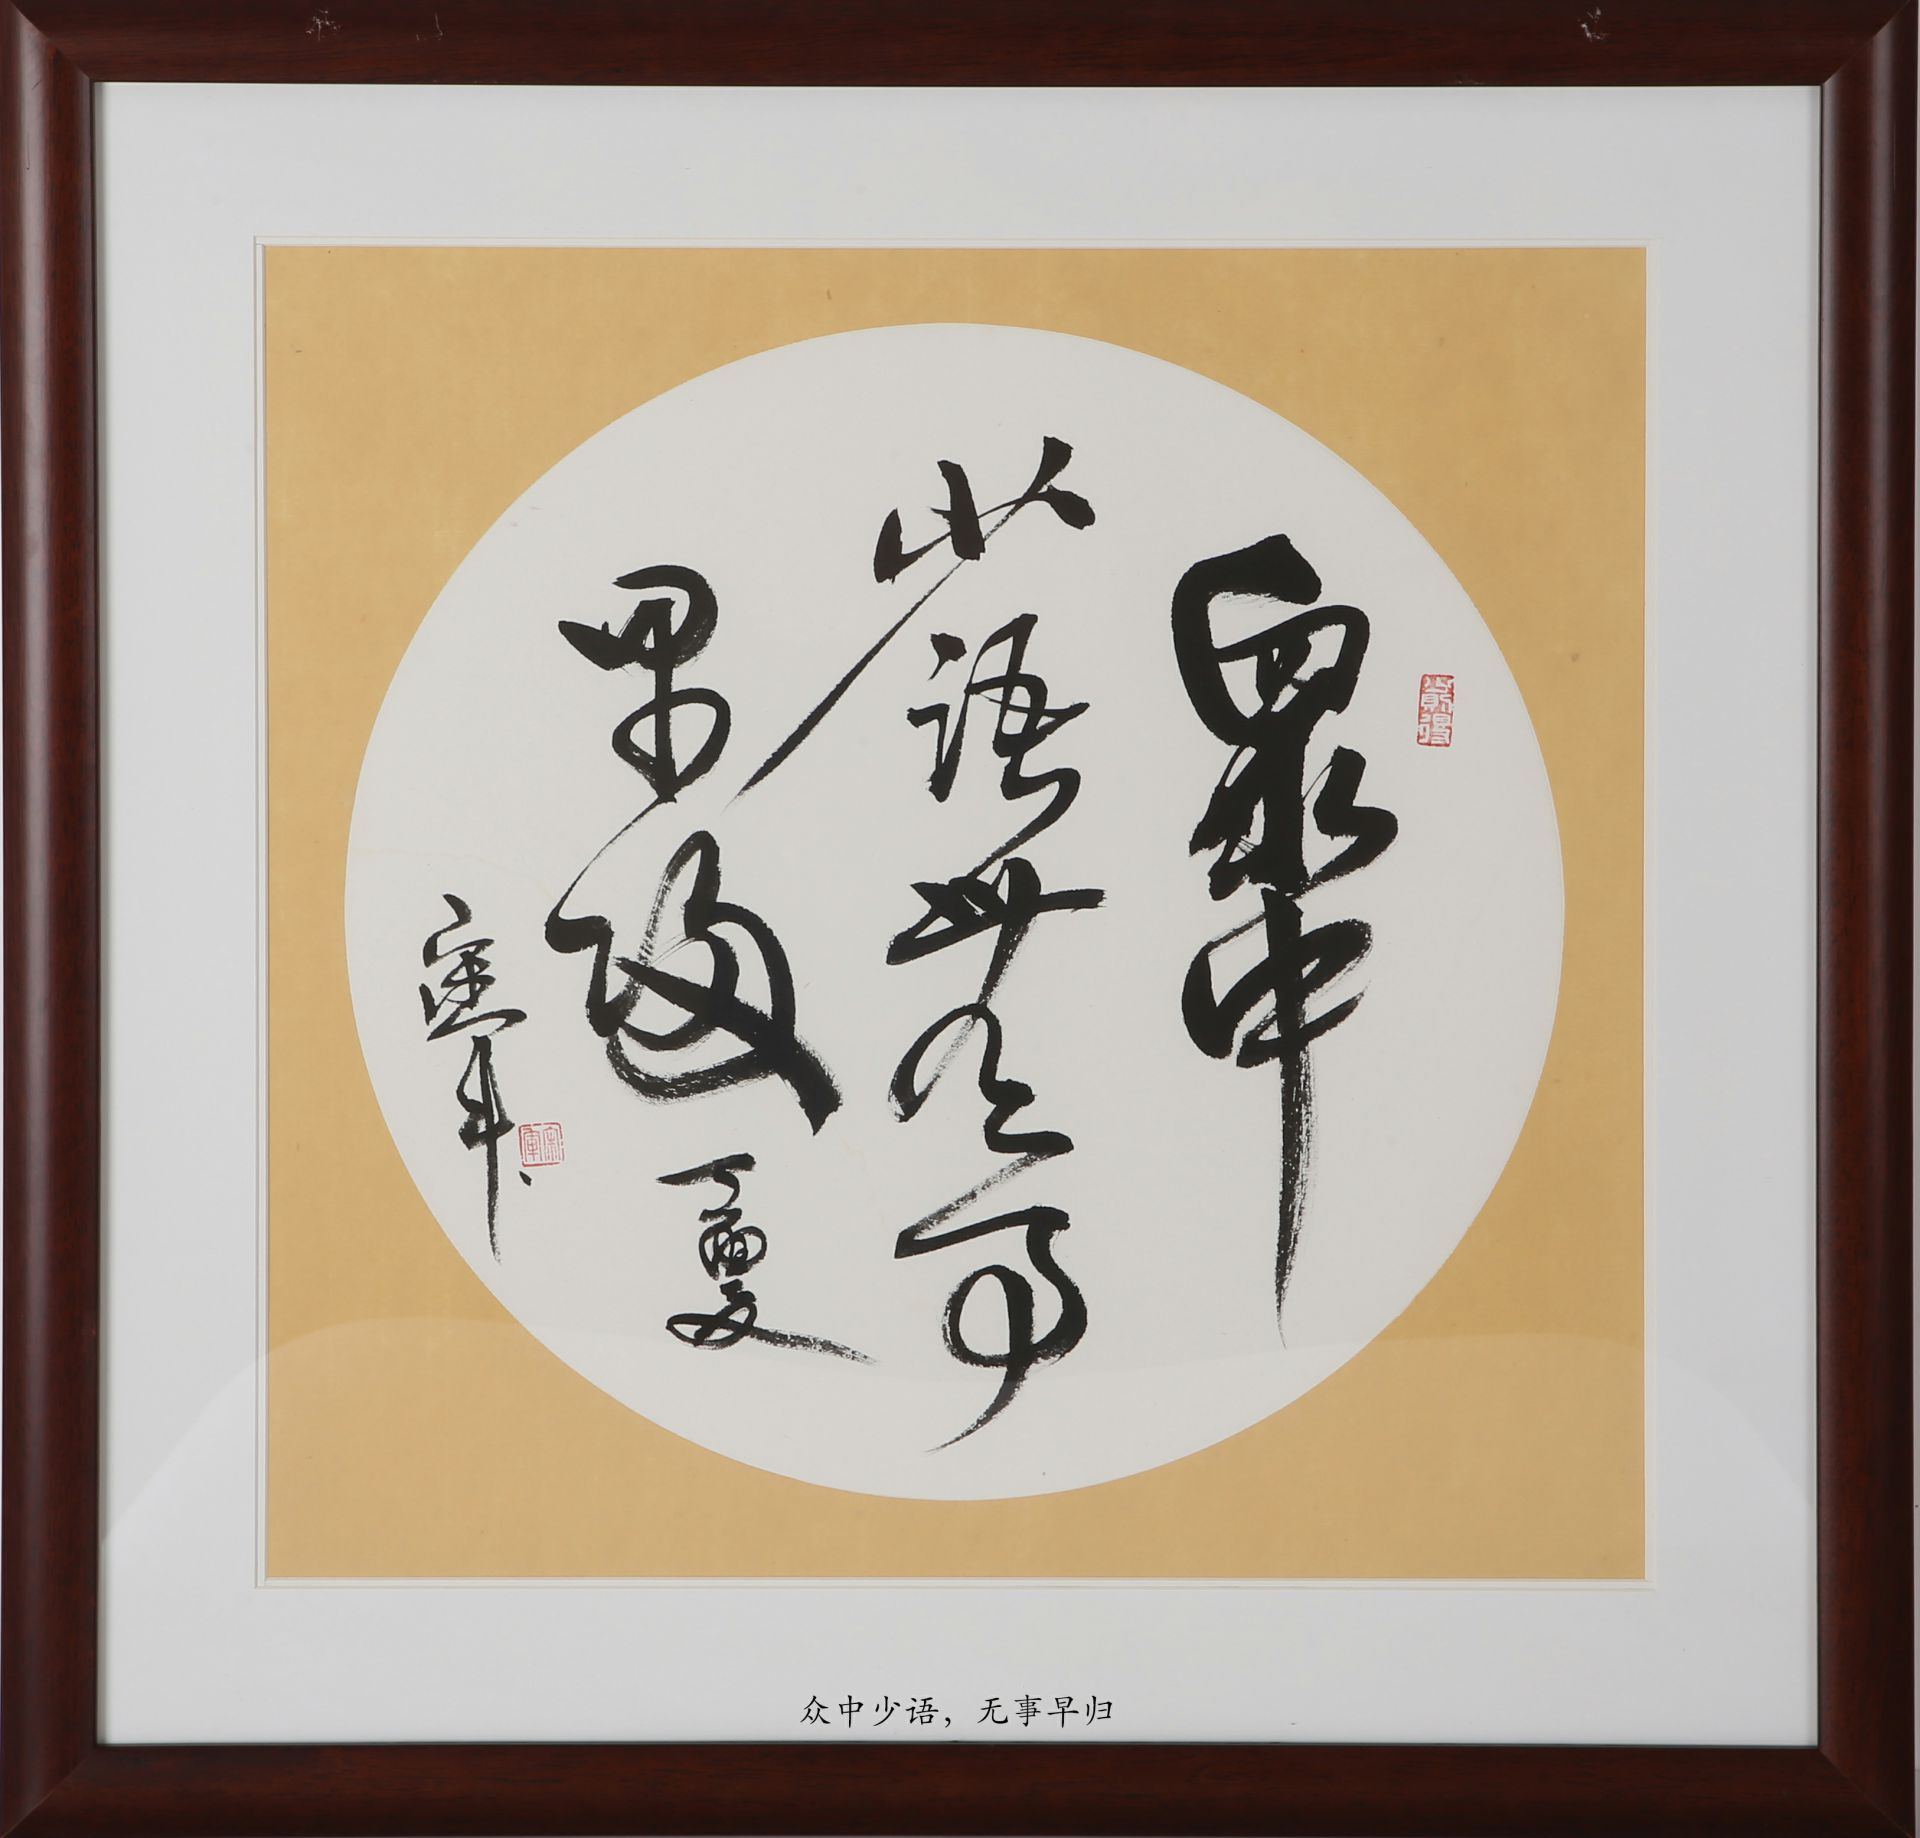 眾中
少語無事
早歸
夏
众中少语，无事早归